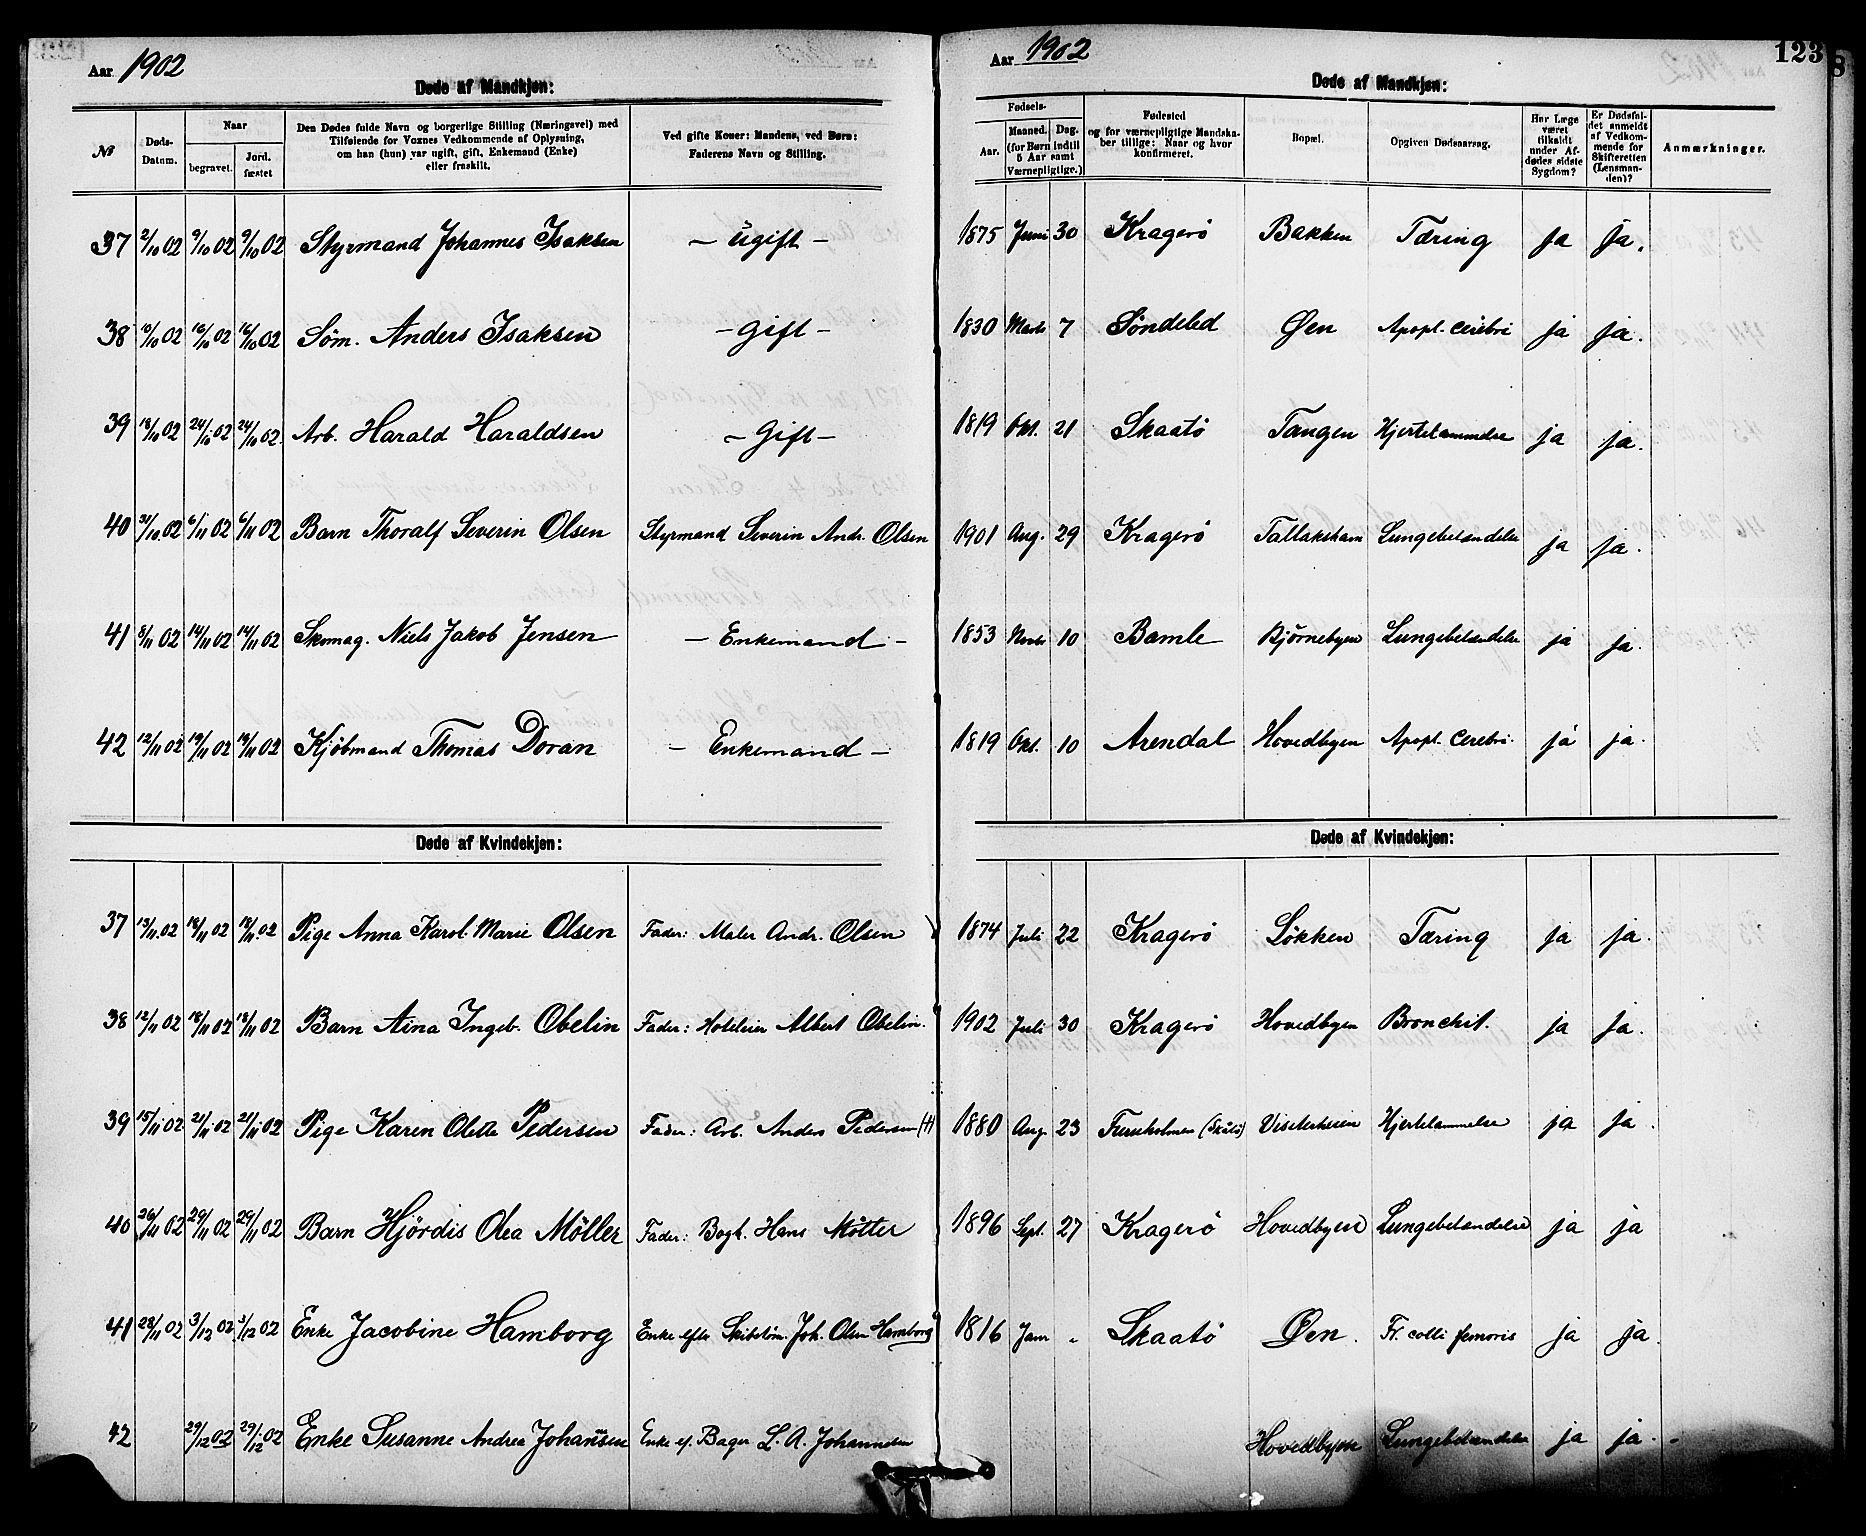 Aar 1902
Døde af Mandkjøn:
№ | Døds-Datum. | Naar begravet. | Naar Jord. fæstet | Den Dødes fulde Navn og borgerlige Stilling (Næringsvei) med Tilføiende for Voxnes Vedkommende af Oplysning, om han (hun) var ugift, gift, Enkemand (Enke) eller fraskilt. | Ved gifte Koner: Mandens, ved Børn: Faderens Navn og Stilling.
37 2/10 02 9/10 02 9/10 02 Styrmand Johannes Isaksen – ugift –
38 10/10 02 16/10 02 16/10 02 Søm. Anders Isaksen – Gift –
39 18/10 02 24/10 02 24/10 02. Arb. Harald Haraldsen – Gift –
40 31/10. 02 6/11 02 6/11 02 Barn Thoralf Severin Olsen Styrmand Severin Andr. Olsen
41 8/11 02 14/11 02 14/11 02 Skomag. Niels Jakob Jensen – Enkemand –
42 12/11 02 19/11 02 19/11 02 Kjøbmand Thomas Doran – Enkemand –
Døde af Kvindekjøn:
37 13/11. 02 18/11 02 18/11. 02 Pige Anna Karol. Marie Olsen Fader: Maler Andr. Olsen
38 12/11 02 18/11 02 18/11 02 Barn Aina Ingeb. Obelin Fader: Hoteleier Albert Obelin.
39 15/11 02 21/11 02 21/11 02 Pige Karen Olette Pedersen Fader: Arb. Anders Pedersen (†)
40 26/11 02 29/11 02 29/11 02 Barn Hjørdis Olea Möller Fader: Bogh. Hans Møller
41 28/11 02 3/12 02 3/12 02 Enke Jacobine Hamborg Enke efter Skibstøm. Joh. Olsen Hamborg
42 29/12 02 29/12 02 Enke Susanne Andrea Johannsen Enke ef. Bager L. A. Johannsen
Aar 1902
123
Døde af Mandkjøn:
Fødsels- Aar. | Maaned. Dag. (for Børn indtil 5 Aar samt Værnepligtige.) | Fødested og for værnepligtige Mandskaber tillige: Naar og hvor konfirmeret. | Bopæl. | Opgiven Dødsaarsag. | Har Læge været tilkaldt under Afdødes sidste Sygdom? | Er Dødsfaldet anmeldt af Vedkommende for Skifteretten (Lensmanden)? | Anmærkninger.
1875 Juni 30 Kragerö Bakken Tæring ja ja.
1830 Marts 7 Söndeled Øen Apopl. cerebri ja ja.
1819 Okt. 21 Skaatö Tangen Hjertelammelse ja ja.
1901 Aug. 29 Kragerö Tallakshavn Lungebetændelse ja ja.
1853 Novbr 10 Bamle Bjørnebyen Lungebetændelse ja ja.
1819 Okt. 10 Arendal Hovedbyen Apopl. Cerebri. ja ja.
Døde af Kvindekjøn:
1874 Juli 22 Kragerö Løkken Tæring ja ja.
1902 Juli 30 Kragerö Hovedbyen Bronchit. ja ja.
1880 Aug. 23 Furuholmen (Skåtö) Hjertelammelse ja ja.
1896 Sept. 27 Kragerö Hovedbyen Lungebetændelse ja ja
1816 Jan - Skaatö Øen. Fr. colli femoris ja ja.
Hovedbyen Lungebetændelse ja ja. -